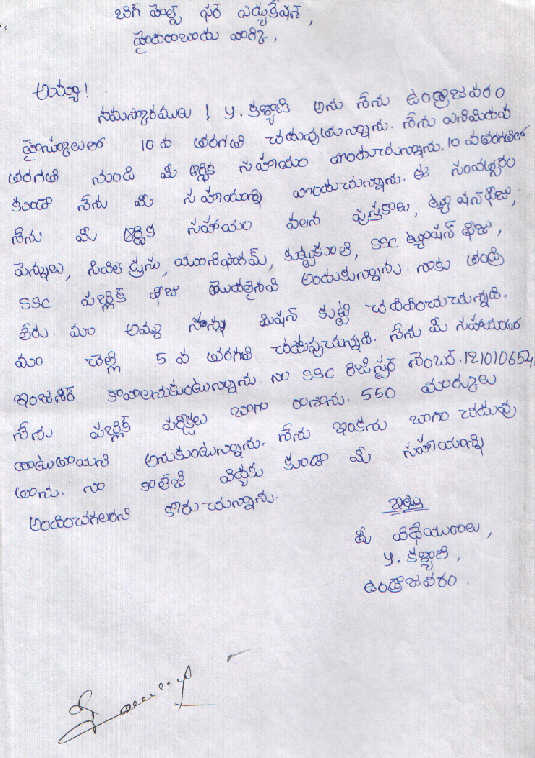 బిగ్ హెల్ప్ ఫర్ ఎడ్యుకేషన్,
హైదరాబాదు వారికి,
అమ్మా!
నమస్కారములు ! y. కళ్యాణి అను నేను ఉండ్రాజవరం
హైస్కూలులో 10 వ తరగతి చదువుతున్నాను. నేను ఎనిమిదవ
తరగతి నుండి మీ ఆర్థిక సహాయం పొందుచున్నాను. 10 వ తరగతిలో
కుండా నేను మీ సహాయాన్ని పొందుచున్నాను. ఈ సంవత్సరం
నేను మీ ఆర్థిక సహాయం వలన పుస్తకాలు, ట్యూషన్ ఫీజు,
పెన్నులు, సివిల్ డ్రస్సు, యూనిఫామ్, కుట్టుకూలి, SSC ట్యూషన్ ఫీజు,
SSC పబ్లిక్ ఫీజు మొదలైనవి అందుకున్నాను నాకు తండ్రి
లేరు మా అమ్మ నన్ను మిషన్ కుట్టి చదివించుచున్నది.
మా చెల్లి 5 వ తరగతి చదువుచున్నది. నేను మీ సహాయంతో
ఇంజనీర్ కావాలనుకుంటున్నాను నా SSC రిజిస్టర్ నెంబర్. 121010652
నేను పబ్లిక్ పరీక్షలు బాగా రాశాను. 550 మార్కులు
దాటుతాయని అనుకుంటున్నాను. నేను ఇంకను బాగా చదువు
తాను. నా కాలేజి విద్యకు కుండా మీ సహాయాన్ని
అందించగలరని కోరుచున్నాను.
ఇట్లు
మీ విధేయురాలు,
y. కళ్యాణి,
ఉండ్రాజవరం.